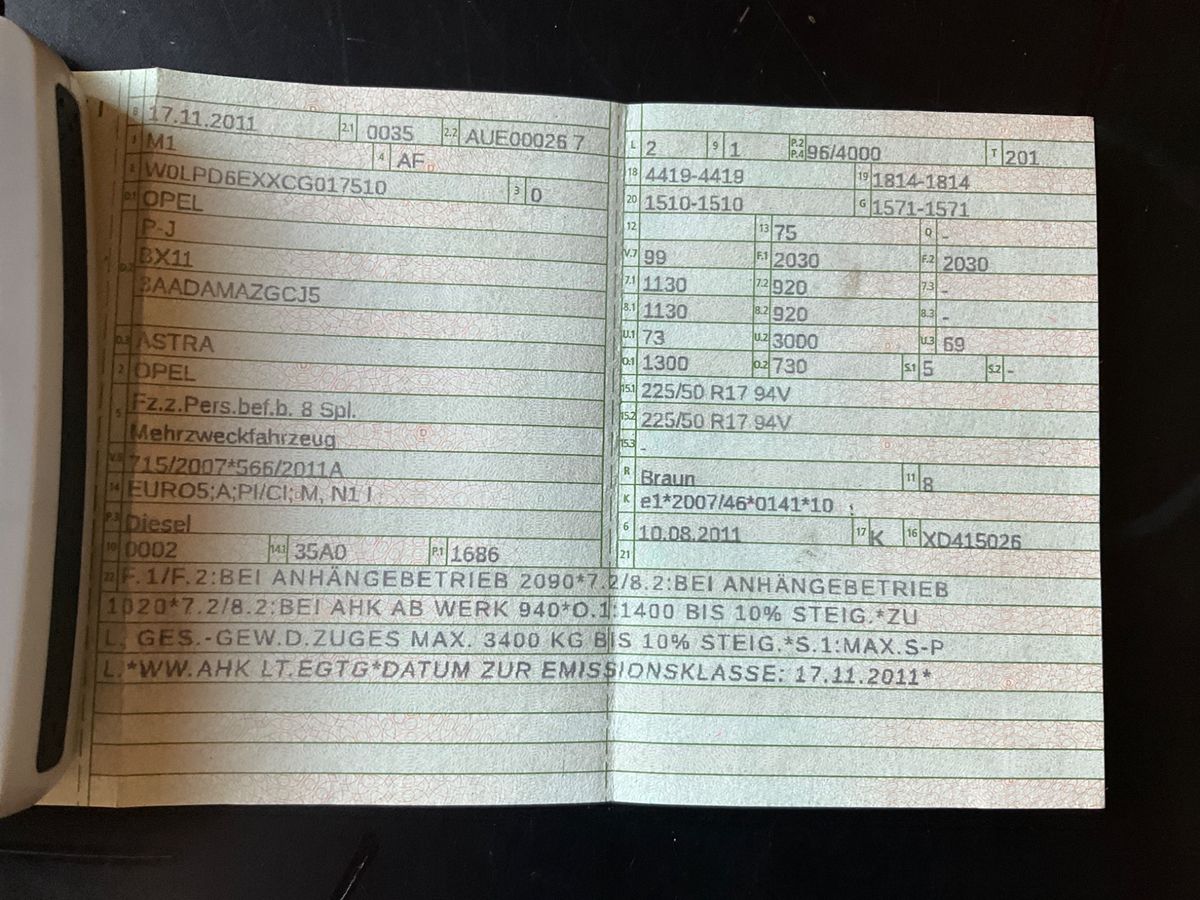 B 17.11.2011 2.1 0035 2.2 AUE00026 7
J M1 4 AF
E W0LPD6EXXCG017510 3 0
D.1 OPEL
P-J
D.2 BX11
3AADAMAZGCJ5
D.3 ASTRA
2 OPEL
5 Fz.z.Pers.bef.b. 8 Spl.
Mehrzweckfahrzeug
V.9 715/2007*566/2011A
14 EURO5;A;PI/CI; M, N1 I
P.3 Diesel
10 0002 14.1 35A0 P.1 1686
L 2 9 1 P.2 P.4 96/4000 T 201
18 4419-4419 19 1814-1814
20 1510-1510 G 1571-1571
12 13 75 Q -
V.7 99 F.1 2030 F.2 2030
7.1 1130 7.2 920 7.3 -
8.1 1130 8.2 920 8.3 -
U.1 73 U.2 3000 U.3 69
O.1 1300 O.2 730 S.1 5 S.2 -
15.1 225/50 R17 94V
15.2 225/50 R17 94V
15.3 -
R Braun 11 8
K e1*2007/46*0141*10
6 10.08.2011 17 K 16 XD415026
21
22 F.1/F.2:BEI ANHÄNGEBETRIEB 2090*7.2/8.2:BEI ANHÄNGEBETRIEB
1020*7.2/8.2:BEI AHK AB WERK 940*O.1:1400 BIS 10% STEIG.*ZU
L. GES.-GEW.D.ZUGES MAX. 3400 KG BIS 10% STEIG.*S.1:MAX.S-P
L.*WW.AHK LT.EGTG*DATUM ZUR EMISSIONSKLASSE: 17.11.2011*